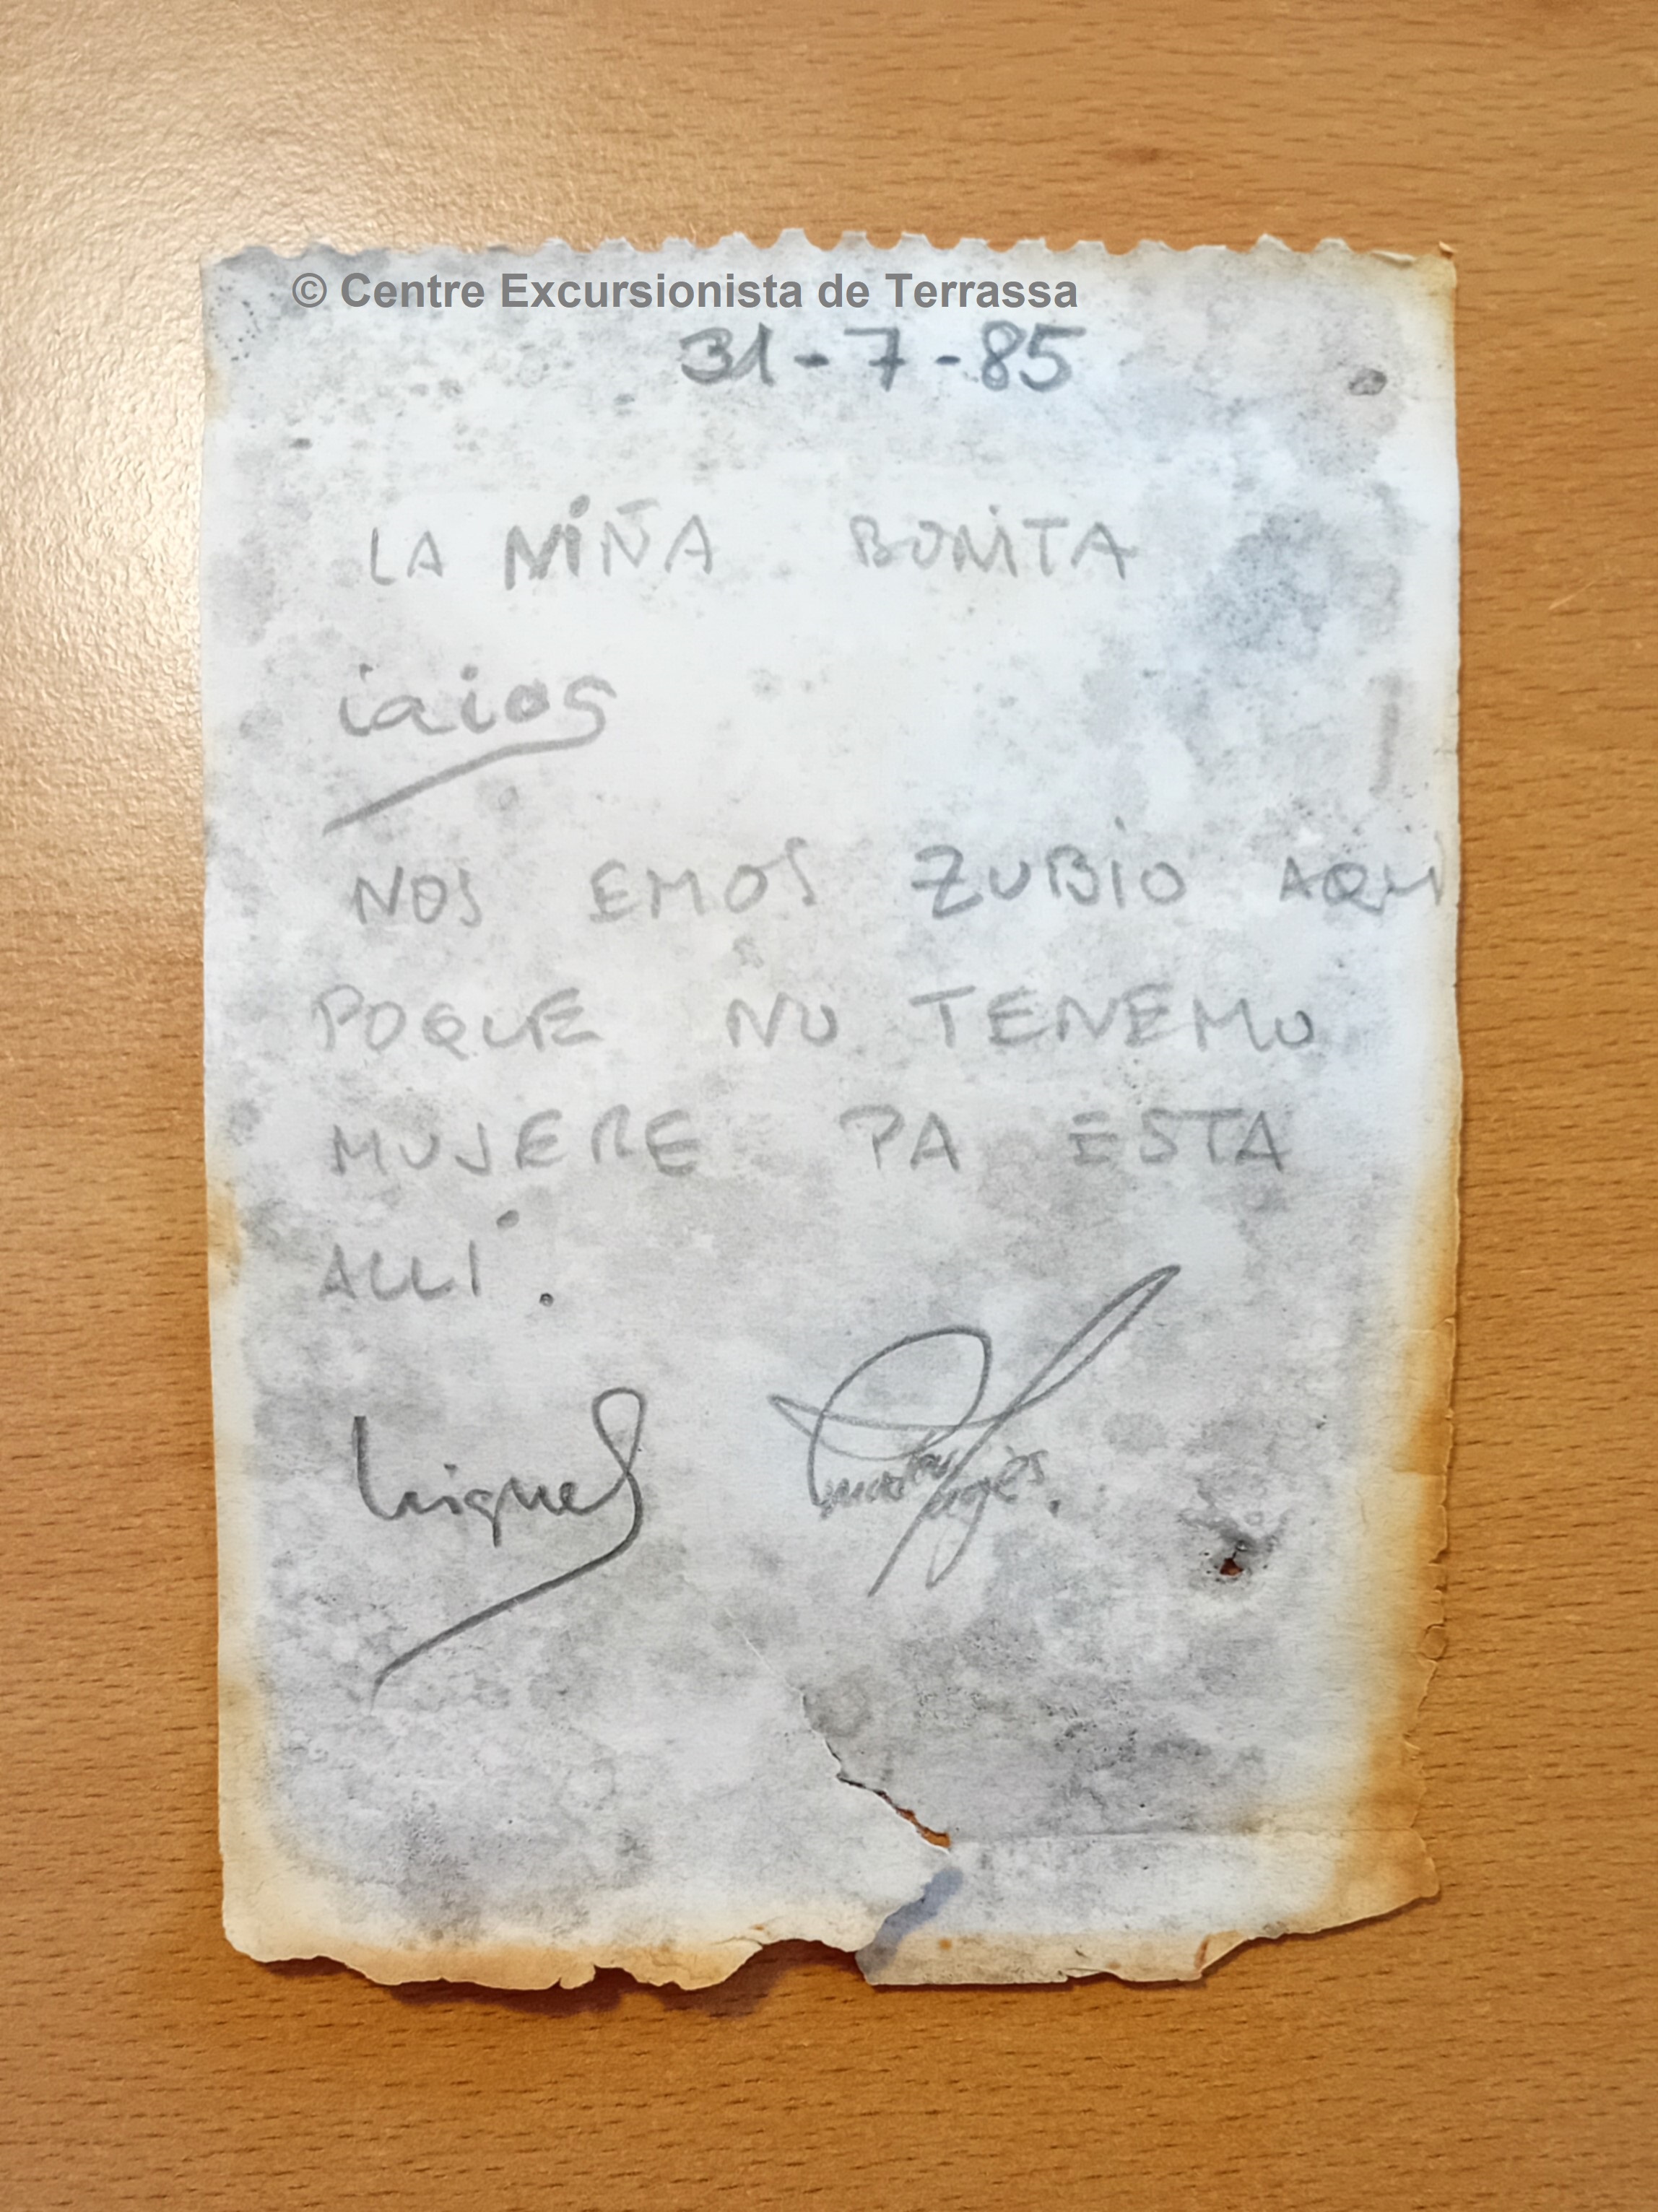 © Centre Excursionista de Terrassa
31-7-85
LA NIÑA BONITA
iaios
NOS EMOS ZUBIO AQUI
POQUE NO TENEMO
MUJERE PA ESTA
ALLÍ.
Miquel